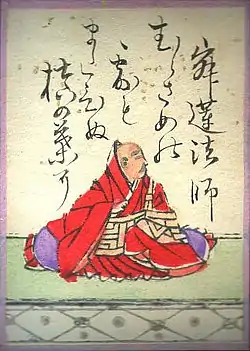 寂蓮法師
むらさめの
つゆも
またひぬ
槙の葉に